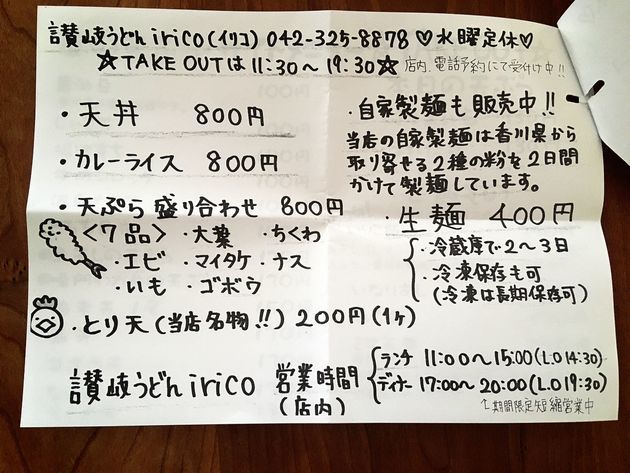 讃岐うどんirico(イリコ) 042-325-8878 ♡水曜定休♡
☆TAKE OUTは11:30〜19:30☆ 店内、電話予約にて受付け中!!
・天丼 800円
・カレーライス 800円
・天ぷら盛り合わせ 800円
〈7品〉・大葉 ・ちくわ
・エビ ・マイタケ ・ナス
・いも ・ゴボウ
・自家製麺も販売中!!
当店の自家製麺は香川県から
取り寄せる2種の粉を2日間
かけて製麺しています。
・生麺 400円
・冷蔵庫で2〜3日
・冷凍保存も可
(冷凍は長期保存可)
・とり天(当店名物!!) 200円(1ヶ)
讃岐うどんirico 営業時間
(店内)
ランチ 11:00〜15:00(L.O 14:30)
ディナー 17:00〜20:00(L.O 19:30)
↑期間限定短縮営業中